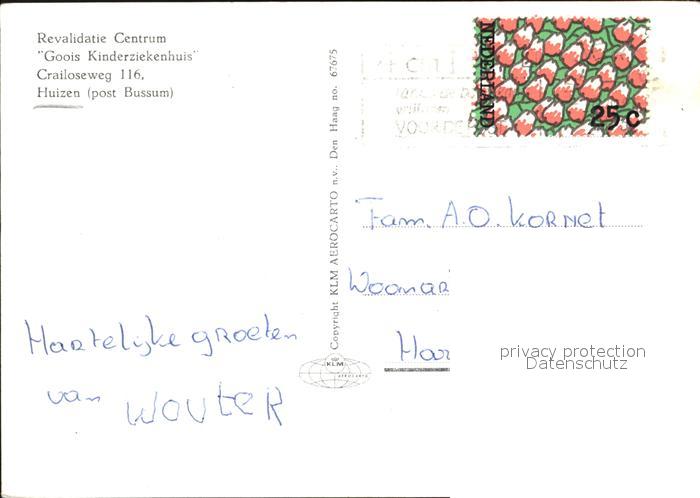 Revalidatie Centrum
"Goois Kinderziekenhuis"
Crailoseweg 116,
Huizen (post Bussum)
NEDERLAND
25 c
Copyright KLM AEROCARTO n.v., Den Haag no. 67675
Fam. A.O. Kornet
Hartelijke groeten
van WOUTER
KLM
AEROCARTO
privacy protection
Datenschutz